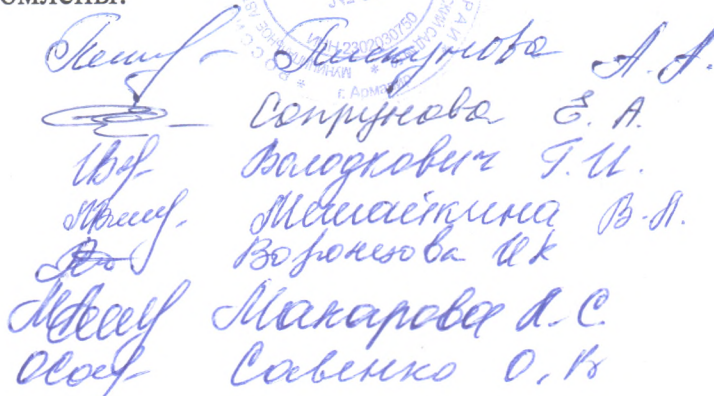 омлены.
ИНН 2302030750
г. Армавир
Пискунова А. А.
Сопрунова Е. А.
Володкович Т. И.
Мишайкина В. П.
Воронцова И К
Макарова Л. С.
Савенко О. В